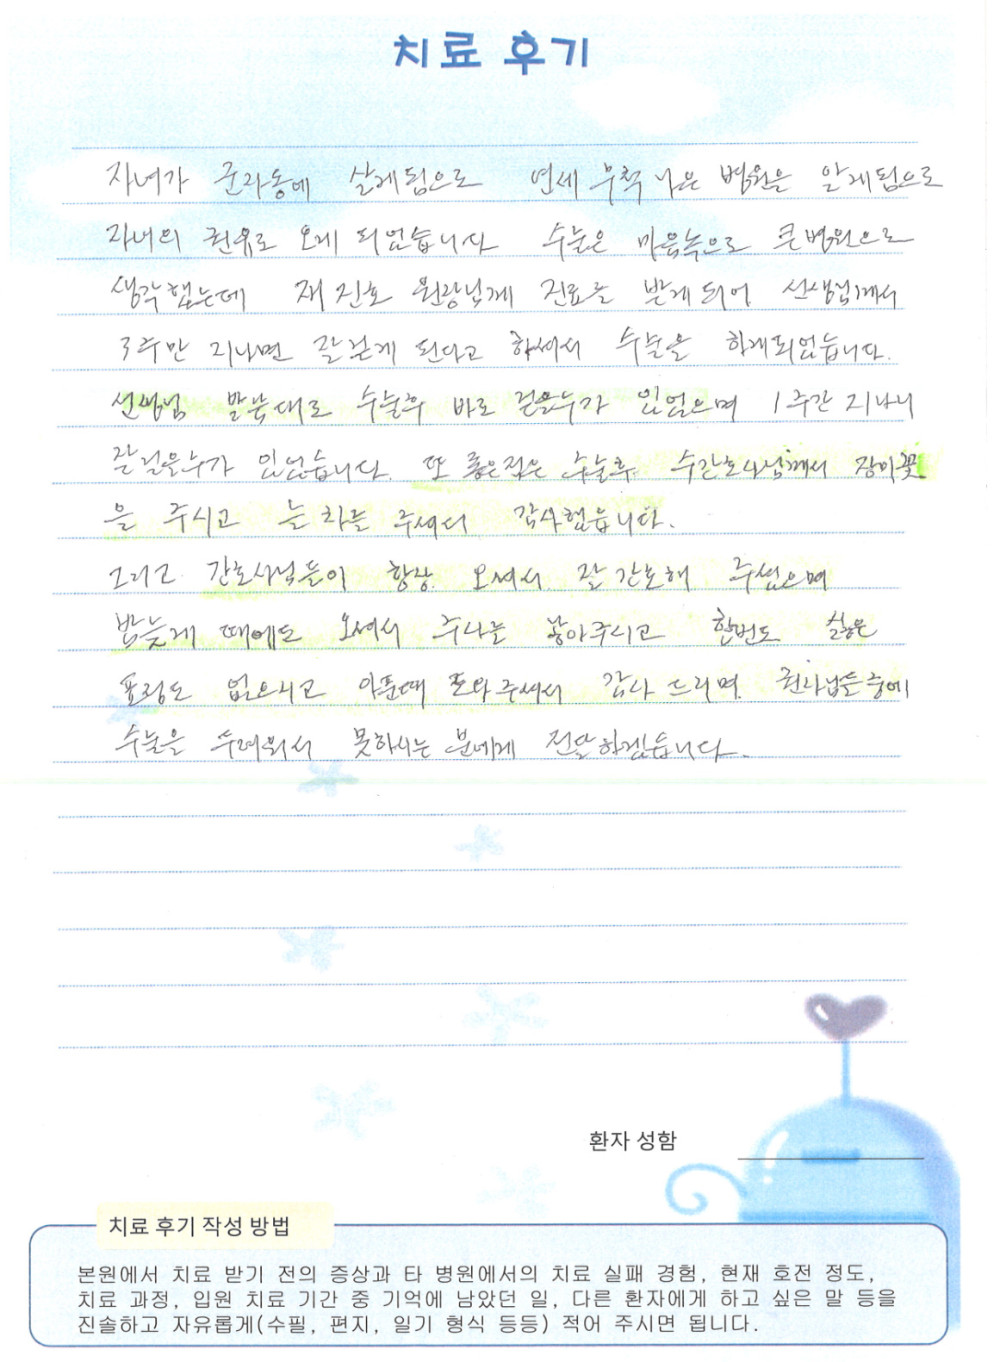 치료 후기
자녀가 군자동에 살게됨으로 연세 무척 나은 병원을 알게됨으로
자녀의 권유로 오게 되었습니다 수술은 마음속으로 큰병원으로
생각했는데 재 진호 원장님께 진료를 받게되어 선생님께서
3주만 지나면 잘걷게 된다고 하셔서 수술을 하게되었습니다.
선생님 말씀대로 수술후 바로 걸을수가 있었으며 1주간 지나니
잘걸을수가 있었습니다. 또 좋은점은 수술후 수간호사님께서 장미꽃
을 주시고 눈차를 주셔서 감사했읍니다.
그리고 간호사님들이 항상 오셔서 잘 간호해 주셨으며
밤늦게 때에도 오셔서 주사를 놓아주시고 한번도 싫은
표정도 없으시고 아픈때 도와주셔서 감사 드리며. 권사님들 중에
수술을 두려워서 못하시는 분에게 전달하겠습니다.
환자 성함
치료 후기 작성 방법
본원에서 치료 받기 전의 증상과 타 병원에서의 치료 실패 경험, 현재 호전 정도,
치료 과정, 입원 치료 기간 중 기억에 남았던 일, 다른 환자에게 하고 싶은 말 등을
진솔하고 자유롭게(수필, 편지, 일기 형식 등등) 적어 주시면 됩니다.